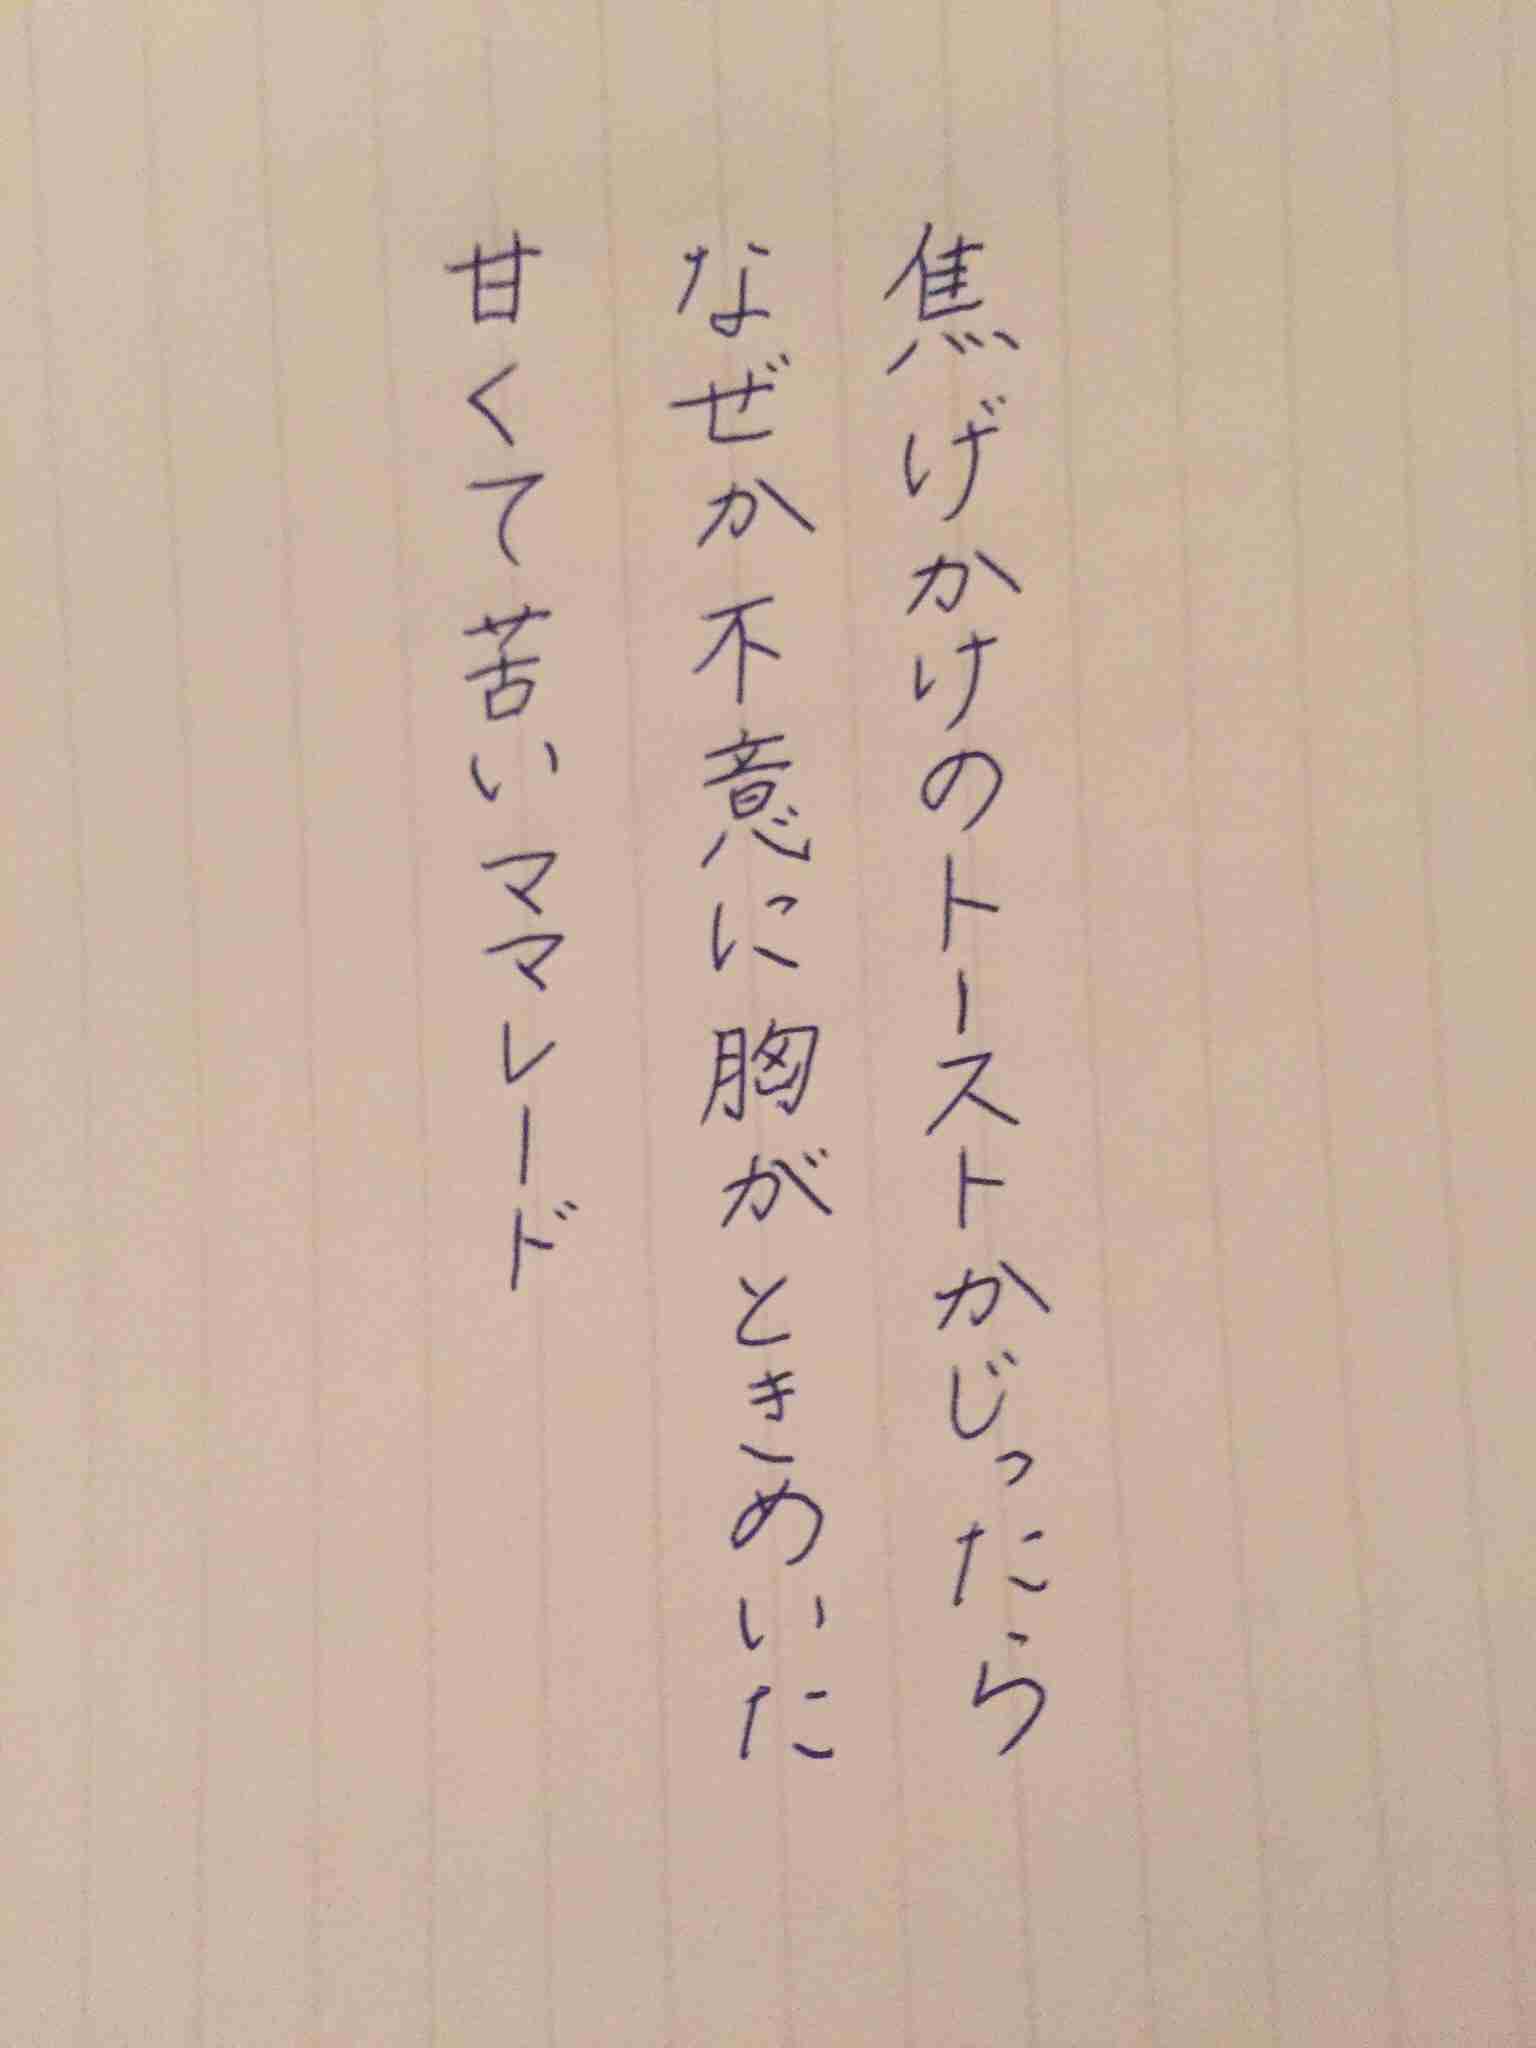 焦げかけのトーストかじったら
なぜか不意に胸がときめいた
甘くて苦いママレード